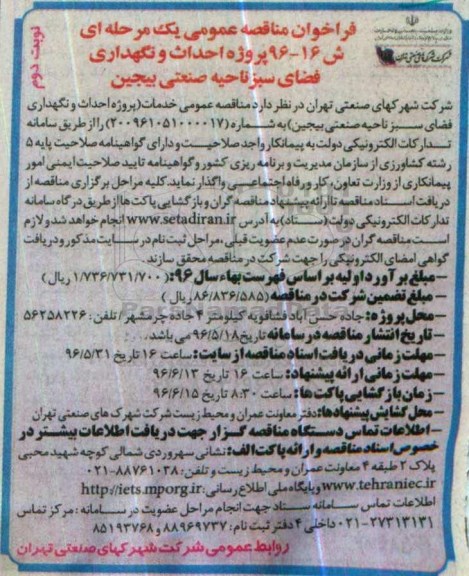 فراخوان مناقصه عمومی یک مرحله ای
ش ۱۶-۹۶ پروژه احداث و نگهداری
فضای سبز ناحیه صنعتی بیجین
نوبت دوم
شرکت شهرکهای صنعتی تهران در نظر دارد مناقصه عمومی خدمات (پروژه احداث و نگهداری
فضای سبز ناحیه صنعتی بیجین) به شماره (۲۰۰۹۶۱۰۵۱۰۰۰۰۱۷) را از طریق سامانه
تدارکات الکترونیکی دولت به پیمانکار واجد صلاحیت و دارای گواهینامه صلاحیت پایه ۵
رشته کشاورزی از سازمان مدیریت و برنامه ریزی کشور و گواهینامه تایید صلاحیت ایمنی امور
پیمانکاری از وزارت تعاون، کار و رفاه اجتماعی واگذار نماید. کلیه مراحل برگزاری مناقصه از
دریافت اسناد مناقصه تا ارائه پیشنهاد مناقصه گران و بازگشایی پاکت ها از طریق درگاه سامانه
تدارکات الکترونیکی دولت (ستاد) به آدرس www.setadiran.ir انجام خواهد شد و لازم
است مناقصه گران در صورت عدم عضویت قبلی، مراحل ثبت نام در سایت مذکور و دریافت
گواهی امضای الکترونیکی را جهت شرکت در مناقصه محقق سازند.
– مبلغ برآورد اولیه بر اساس فهرست بهاء سال ۹۶: (۱/۷۳۶/۷۳۱/۷۰۰ ریال)
– مبلغ تضمین شرکت در مناقصه (۸۶/۸۳۶/۵۸۵ ریال)
– محل پروژه: جاده حسن آباد فشافویه کیلومتر ۴ جاده چرمشهر / تلفن: ۵۶۲۵۸۲۲۶
– تاریخ انتشار مناقصه در سامانه تاریخ ۹۶/۵/۱۸ می باشد.
– مهلت زمانی دریافت اسناد مناقصه از سایت: ساعت ۱۶ تاریخ ۹۶/۵/۳۱
– مهلت زمانی ارائه پیشنهاد: ساعت ۱۶ تاریخ ۹۶/۶/۱۳
– زمان بازگشایی پاکت ها: ساعت ۸:۳۰ تاریخ ۹۶/۶/۱۵
– محل گشایش پیشنهادها: دفتر معاونت عمران و محیط زیست شرکت شهرک های صنعتی تهران
– اطلاعات تماس دستگاه مناقصه گزار جهت دریافت اطلاعات بیشتر در
خصوص اسناد مناقصه و ارائه پاکت الف: نشانی سهروردی شمالی کوچه شهید محبی
پلاک ۲ طبقه ۴ معاونت عمران و محیط زیست و تلفن: ۸۸۷۶۱۰۳۸-۰۲۱
www.tehraniec.ir و پایگاه ملی اطلاع رسانی: http://iets.mporg.ir
اطلاعات تماس سامانه ستاد جهت انجام مراحل عضویت در سامانه: مرکز تماس
۲۷۳۱۳۱۳۱-۰۲۱ داخلی ۴ دفتر ثبت نام: ۸۸۹۶۹۷۳۷ و ۸۵۱۹۳۷۶۸
روابط عمومی شرکت شهرکهای صنعتی تهران